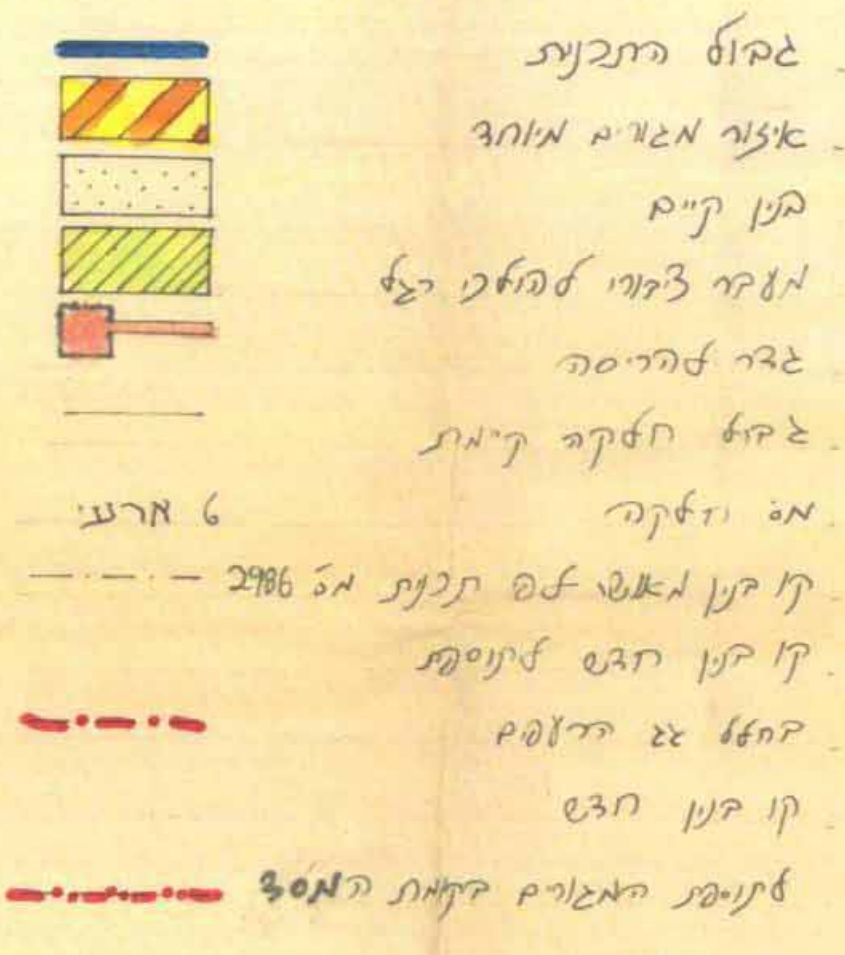 גבול התכנית
איזור מגורים מיוחד
בנין קיים
מעבר ציבורי להולכי רגל
גדר להריסה
גבול חלקה קיימת
מס' חלקה
קו בנין מאושר ע"פ תכנית מס' 2986
קו בנין חדש לתוספת
בחלל גג הרעפים
קו בנין חדש
לתוספת המגורים בקומת המסד